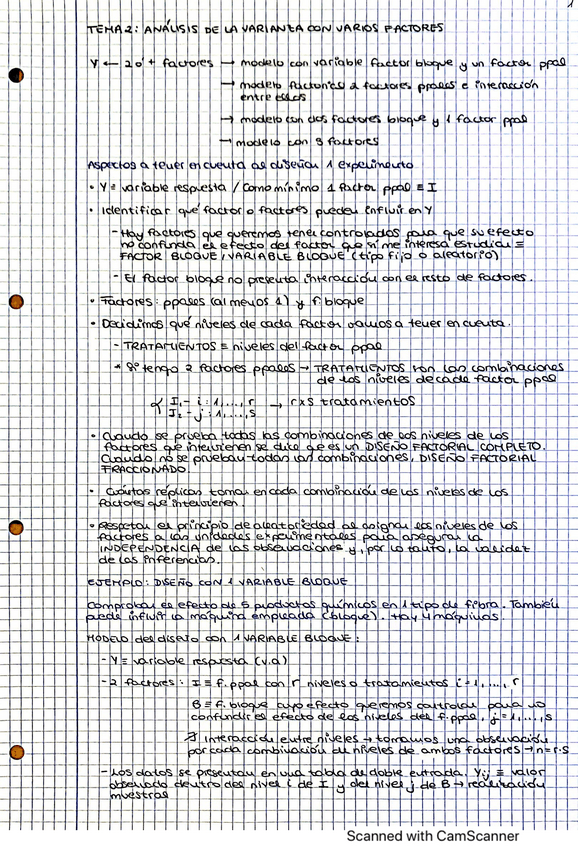 1
TEMA 2: ANÁLISIS DE LA VARIANZA CON VARIOS FACTORES
Y ← 2 o + factores → modelo con variable factor bloque y un factor ppal
→ modelo factorial 2 factores ppales e interacción
entre ellos
→ modelo con dos factores bloque y 1 factor ppal
→ modelo con 3 factores
Aspectos a tener en cuenta al diseñar 1 experimento
• Y ≡ variable respuesta / Como mínimo 1 factor ppal ≡ I
• Identificar qué factor o factores pueden influir en Y
- Hay factores que queremos tener controlados para que su efecto
no confunda el efecto del factor que sí me interesa estudiar ≡
FACTOR BLOQUE / VARIABLE BLOQUE (tipo fijo o aleatorio)
- El factor bloque no presenta interacción con el resto de factores.
• Factores: ppales (al menos 1) y f. bloque
• Decidimos qué niveles de cada factor vamos a tener en cuenta.
- TRATAMIENTOS ≡ niveles del factor ppal
* Si tengo 2 factores ppales → TRATAMIENTOS son las combinaciones
de los niveles de cada factor ppal
{ I₁ - i: 1, ..., r
I₂ - j: 1, ..., s → r x s tratamientos
• Cuando se prueba todas las combinaciones de los niveles de los
factores que intervienen se dice que es un DISEÑO FACTORIAL COMPLETO.
Cuando no se prueban todas las combinaciones, DISEÑO FACTORIAL
FRACCIONADO.
• Cuántas réplicas tomar en cada combinación de los niveles de los
factores que intervienen.
• Respetar el principio de aleatoriedad al asignar los niveles de los
factores a las unidades experimentales para asegurar la
INDEPENDENCIA de las observaciones y, por lo tanto, la validez
de las inferencias.
EJEMPLO: DISEÑO CON 1 VARIABLE BLOQUE
Comprobar el efecto de 5 productos químicos en 1 tipo de fibra. También
puede influir la máquina empleada (bloque). Hay 4 máquinas.
MODELO del diseño CON 1 VARIABLE BLOQUE:
- Y ≡ variable respuesta (v.a)
- 2 factores: I ≡ f. ppal con r niveles o tratamientos i = 1, ..., r
B ≡ f. bloque cuyo efecto queremos controlar para no
confundir el efecto de los niveles del f. ppal, j = 1, ..., s
∄ interacción entre niveles → tomamos una observación
por cada combinación de niveles de ambos factores → n = r·s
- Los datos se presentan en una tabla de doble entrada. Yij ≡ valor
observado dentro del nivel i de I y del nivel j de B → realización
muestral
Scanned with CamScanner